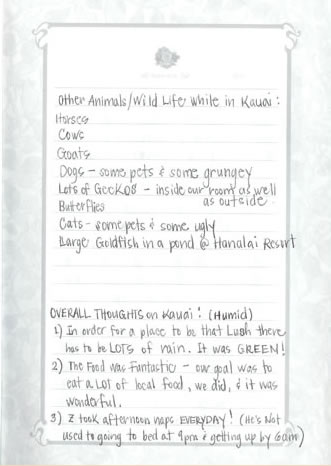 Other Animals/Wild Life while in Kauai:
Horses
Cows
Goats
Dogs - some pets & some grungey
Lots of Geckos - inside our room as well
as outside.
Butterflies
Cats - some pets & some ugly
Large Goldfish in a pond @ Hanalai Resort
OVERALL THOUGHTS on Kauai: (Humid)
1) In order for a place to be that Lush there
has to be LOTS of rain. It was GREEN!
2) The Food was Fantastic - our goal was to
eat a LOT of local food, we did, & it was
wonderful.
3) Z took afternoon naps EVERYDAY! (He's Not
used to going to bed at 9pm & getting up by 6am)